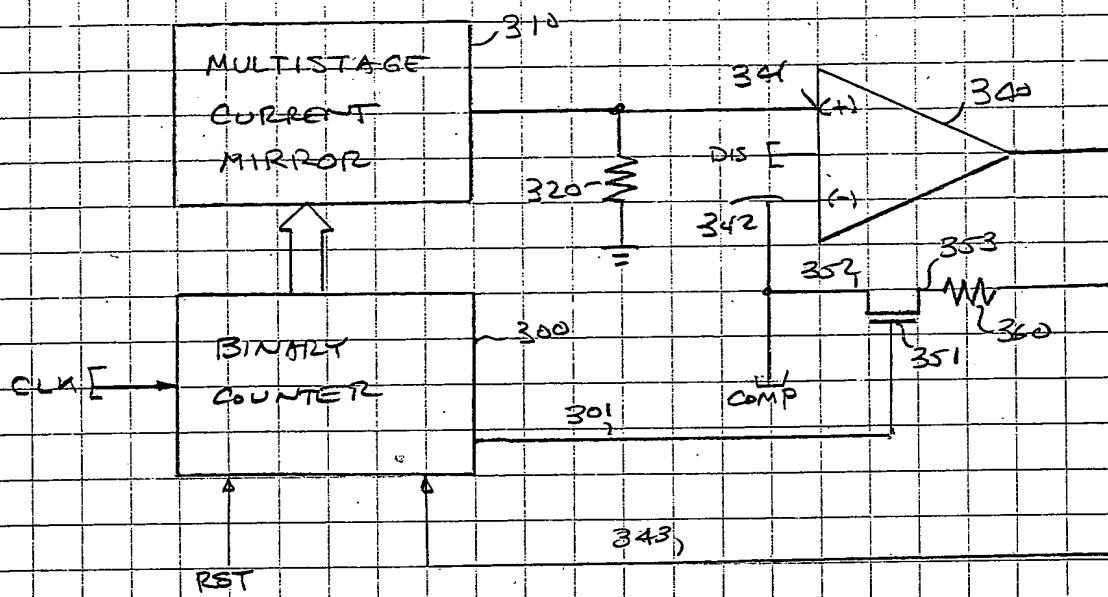 310
MULTISTAGE
CURRENT
MIRROR
341
(+)
340
DIS
320
342
(-)
352
353
360
351
300
BINARY
COUNTER
CLK
COMP
301
343
RST